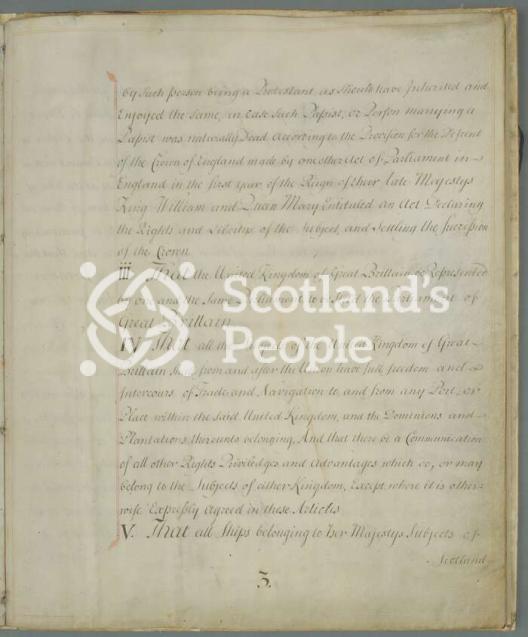 by Such person being a Protestant as Should have Inherited and
Enjoyed the Same, in case Such Papist, or Person marrying a
Papist was naturally Dead according to the Provision for the Descent
of the Crown of England made by one other Act of Parliament in
England in the first year of the Reign of their late Majestys
King William and Queen Mary Entituled an Act Declaring
the Rights and Liberties of the Subject, and Settling the Succession
of the Crown
III. That the United Kingdom of Great Brittain be Represented
by one and the Same Parliament to be Stiled the Parliament of
Great Brittain
IV That all the Subjects of the United Kingdom of Great
Brittain Shall from and after the Union have full freedom and
Intercourse of Trade and Navigation to and from any Port or
Place within the said United Kingdom, and the Dominions and
Plantations thereunto belonging, And that there be a Communication
of all other Rights Priviledges and Advantages which do, or may
belong to the Subjects of either Kingdom, Except where it is other-
wise Expressly agreed in these Articles
V. That all Ships belonging to Her Majestys Subjects of
Scotland
3.
Scotland's
People